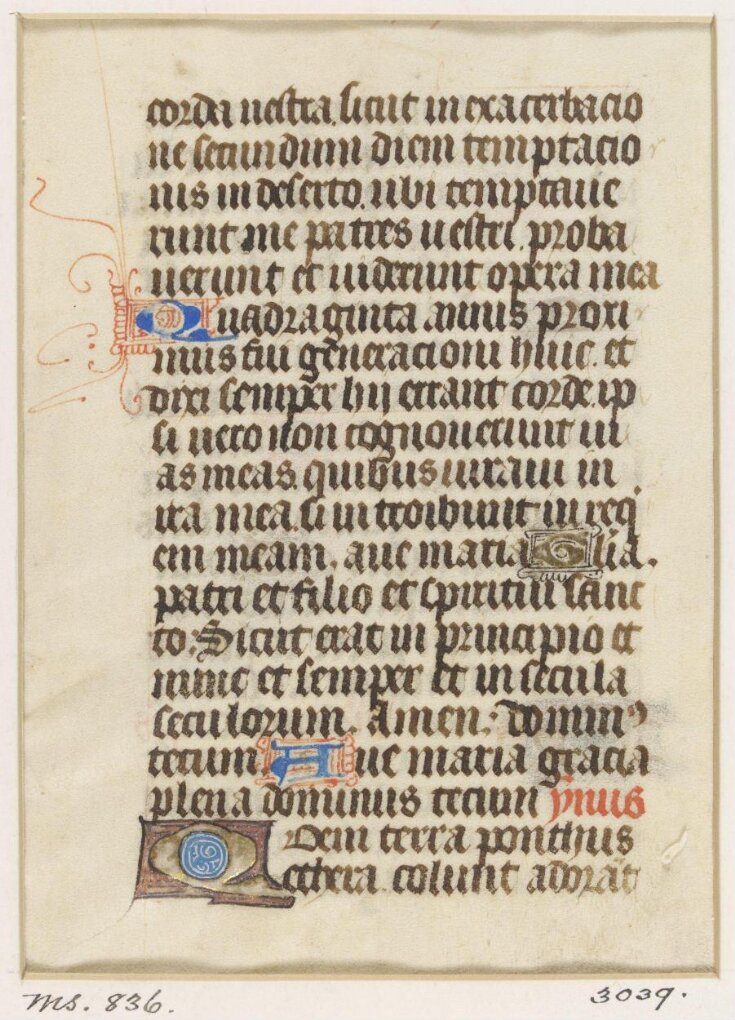 corda nestra. sicut in exacerbacio
ne secundum diem temptacio
nis in deserto. ubi temptaue
runt me patres uestri. proba
uerunt et uiderunt opera mea
Quadraginta annis proxi
mus fui generacioni huic. et
dixi semper hij errant corde. ip
si uero non cognouerunt ui
as meas. quibus iuraui in
ira mea. si introibunt in req
em meam. aue maria Glia.
patri et filio et spiritui sanc
to. Sicut erat in principio et
nunc et semper et in secula
seculorum. Amen. domin9
tecum Aue maria gracia
plena dominus tecum ẏnus
Quem terra ponthus
ethera colunt adorāt
ms. 836.
3039.